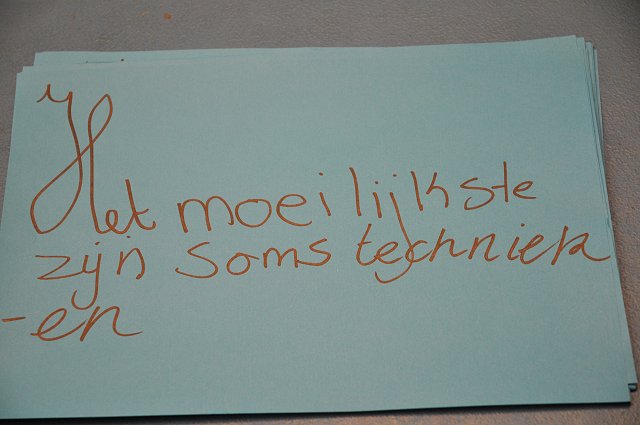 Het moeilijkste
zijn soms techniek
-en